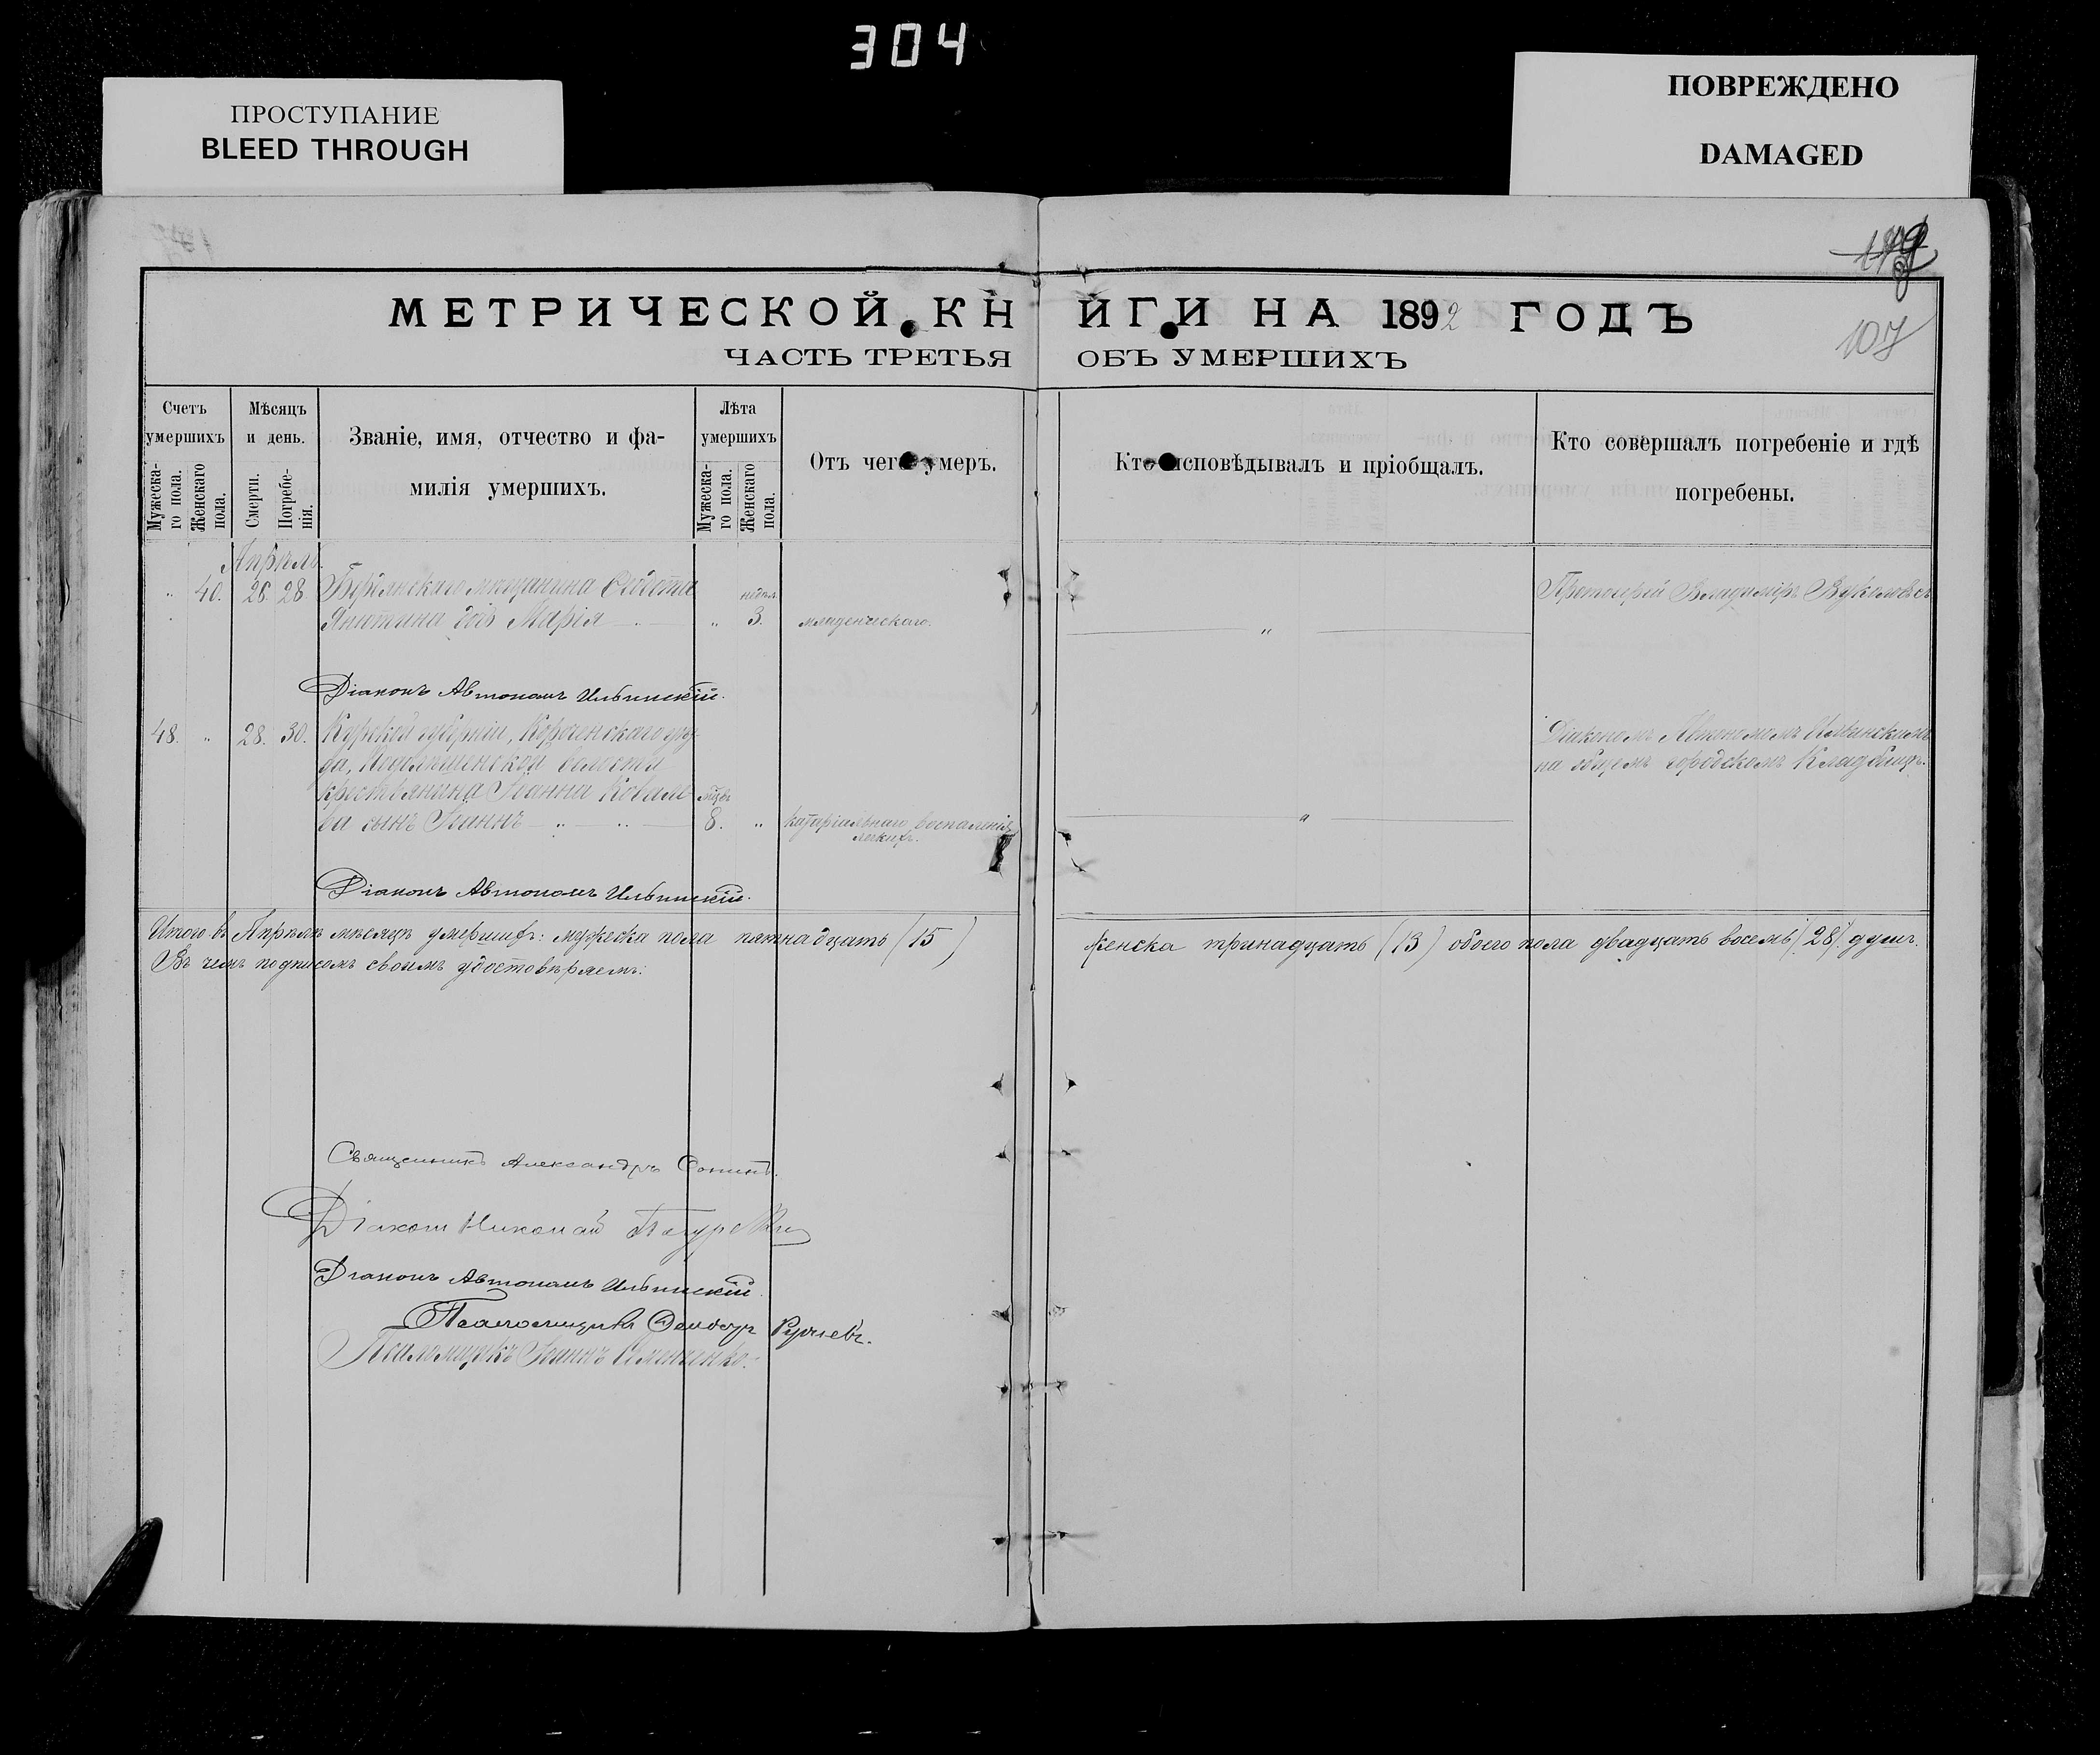 304
ПРОСТУПАНИЕ
BLEED THROUGH
ПОВРЕЖДЕНО
DAMAGED
107
МЕТРИЧЕСКОЙ КНИГИ НА 1892 ГОДЪ
ЧАСТЬ ТРЕТЬЯ ОБЪ УМЕРШИХЪ
Счетъ умершихъ
Мужеска-го пола.
Женскаго пола.
Мѣсяцъ и день.
Смерти.
Погребе-нія.
Званіе, имя, отчество и фа-
милія умершихъ.
Лѣта умершихъ
Мужеска-го пола.
Женскаго пола.
Отъ чего умеръ.
Кто исповѣдывалъ и пріобщалъ.
Кто совершалъ погребеніе и гдѣ
погребены.
Апрѣль.
" 40. 26. 28. Бердянскаго мѣщанина Протоіерей Владиміръ
дочь Марія " 3. младенческаго. "
Діаконъ Автономъ Ильинскій.
48. " 28. 30. Курской губерніи, Корочанскаго уѣз- Діакономъ Автономомъ Ильинскимъ
да, волости на общемъ городскомъ кладбищѣ.
крестьянина Іоанна Ковале-
ва сынъ Іоаннъ 8. " катаріальнаго воспаленія "
легкихъ.
Діаконъ Автономъ Ильинскій.
Итого въ Апрѣлѣ мѣсяцѣ умершихъ: мужеска пола пятнадцать (15) женска тринадцать (13) обоего пола двадцать восемь (28) душъ.
Въ чемъ подписомъ своимъ удостовѣряемъ:
Священникъ Александръ Сонинъ.
Діаконъ Николай
Діаконъ Автономъ Ильинскій.
Псаломщикъ Ѳеодоръ
Псаломщикъ Іоаннъ